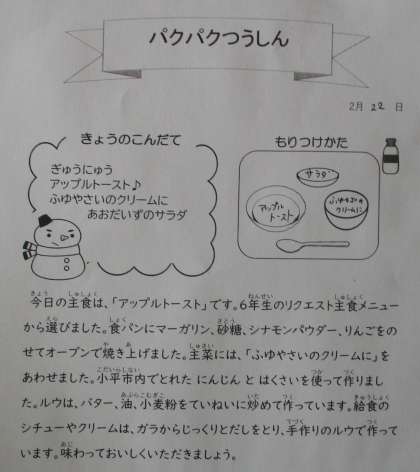 パクパクつうしん
2月 22 日
きょうのこんだて
ぎゅうにゅう
アップルトースト♪
ふゆやさいのクリームに
あおだいずのサラダ
もりつけかた
サラダ
アップル
トースト
ふゆやさいの
クリームに
今日の主食は、「アップルトースト」です。6年生のリクエスト主食メニュー
から選びました。食パンにマーガリン、砂糖、シナモンパウダー、りんごをの
せてオーブンで焼き上げました。主菜には、「ふゆやさいのクリームに」を
あわせました。小平市内でとれた にんじん と はくさいを使って作りまし
た。ルウは、バター、油、小麦粉をていねいに炒めて作っています。給食の
シチューやクリームは、ガラからじっくりとだしをとり、手作りのルウで作って
います。味わっておいしくいただきましょう。